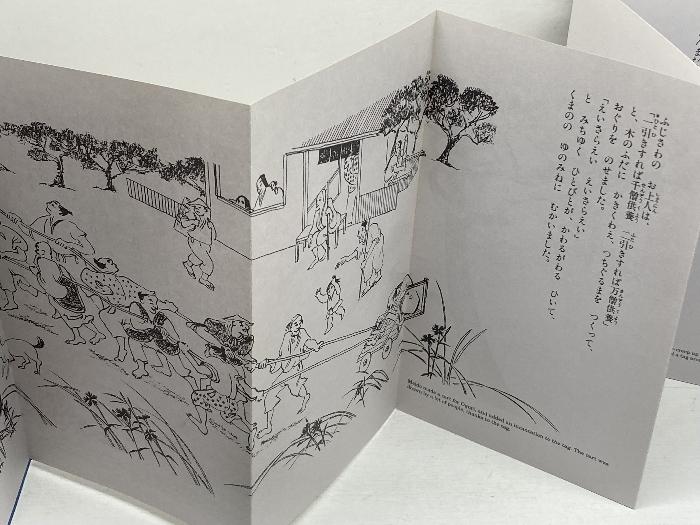 ふじさわの お上人は、
「一引きすれば千僧供養 二引きすれば万僧供養」
と、木のふだに かきくわえ、つちぐるまを つくって、
おぐりを のせました。
「えいさらえい えいさらえい」
と みちゆく ひとびとが、かわるがわる ひいて、
くまのの ゆのみねに むかいました。
made a cart for Oguri, and added an incantation to the tag. The cart was
drawn by a lot of people, thanks to the tag.